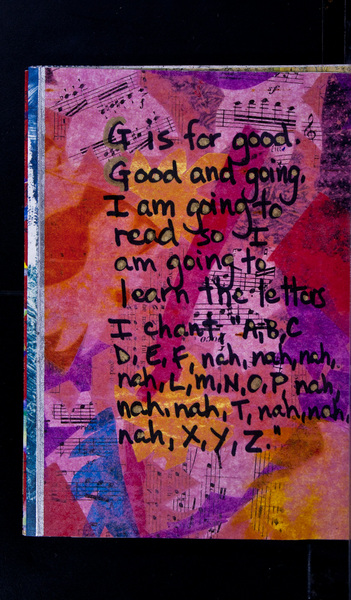 G is for good.
Good and going.
I am going to
read so I
am going to
learn the letters
I chant, "A, B, C
D, E, F, nah, nah, nah,
nah, L, M, N, O, P nah,
nah, nah, T, nah, nah,
nah, X, Y, Z."